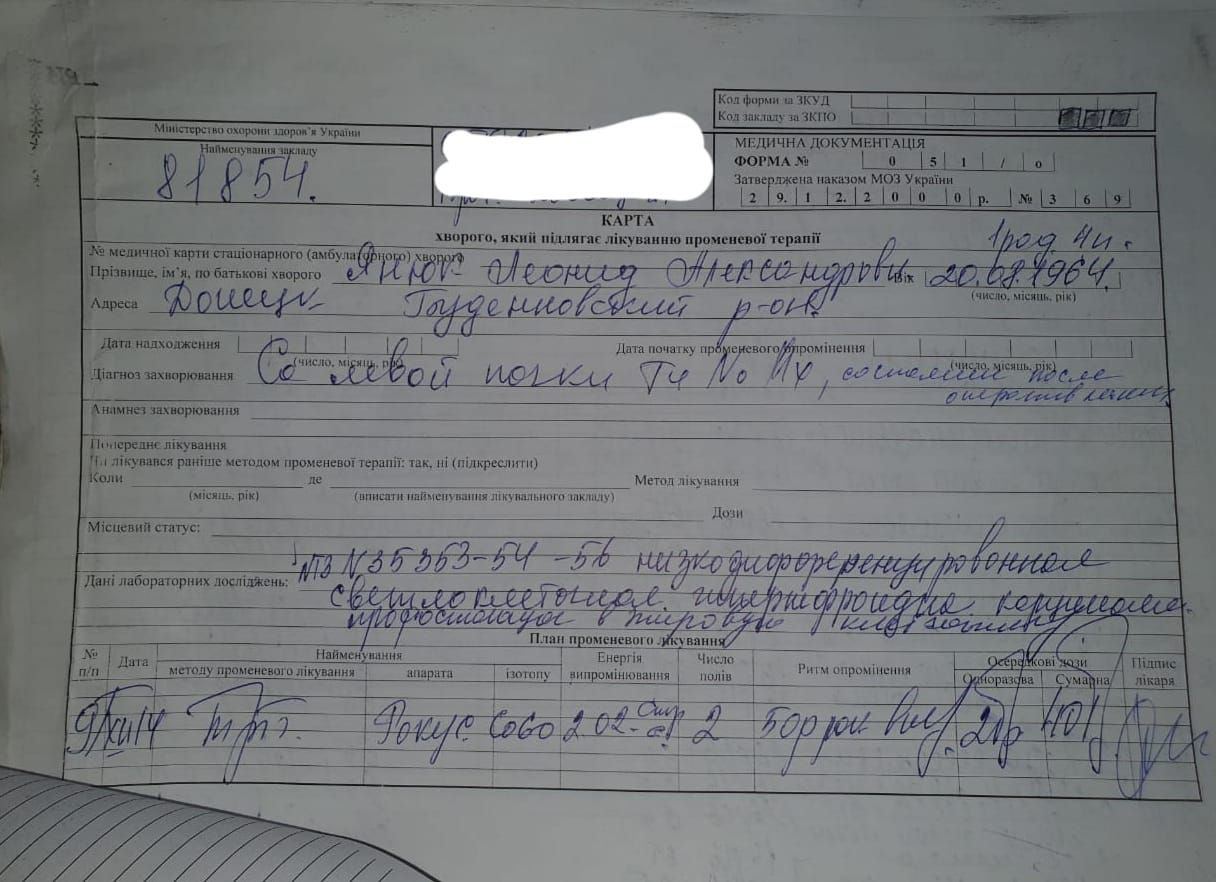 Код форми за ЗКУД
Код закладу за ЗКПО
Міністерство охорони здоров'я України
Найменування закладу
81854.
МЕДИЧНА ДОКУМЕНТАЦІЯ
ФОРМА № 0 5 1 / о
Затверджена наказом МОЗ України
2 9. 1 2. 2 0 0 0 р. № 3 6 9
КАРТА
хворого, який підлягає лікуванню променевої терапії
№ медичної карти стаціонарного (амбулаторного) хворого
Прізвище, ім'я, по батькові хворого Янюк Леонид Александрович Вік 20.08.1964.
(число, місяць, рік)
Адреса Донецк Буденновский р-он.
Дата надходження Дата початку променевого опромінення
(число, місяць, рік) (число, місяць, рік)
Діагноз захворювання Ca левой почки T4 N0 Mx, состояние после
оператив лечения
Анамнез захворювання
Попереднє лікування
Чи лікувався раніше методом променевої терапії: так, ні (підкреслити)
Коли де Метод лікування
(місяць, рік) (вписати найменування лікувального закладу)
Дози
Місцевий статус:
ПГЗ N35353-54-56 низкодифференцированная
Дані лабораторних досліджень:
светлоклеточная гипернефроидна карцинома
в жировую клетчатку
План променевого лікування
№ п/п Дата Найменування Енергія випромінювання Число полів Ритм опромінення Осередкові дози Підпис лікаря
методу променевого лікування апарата ізотопу Одноразова Сумарна
Рокус Co60 2 2Гр